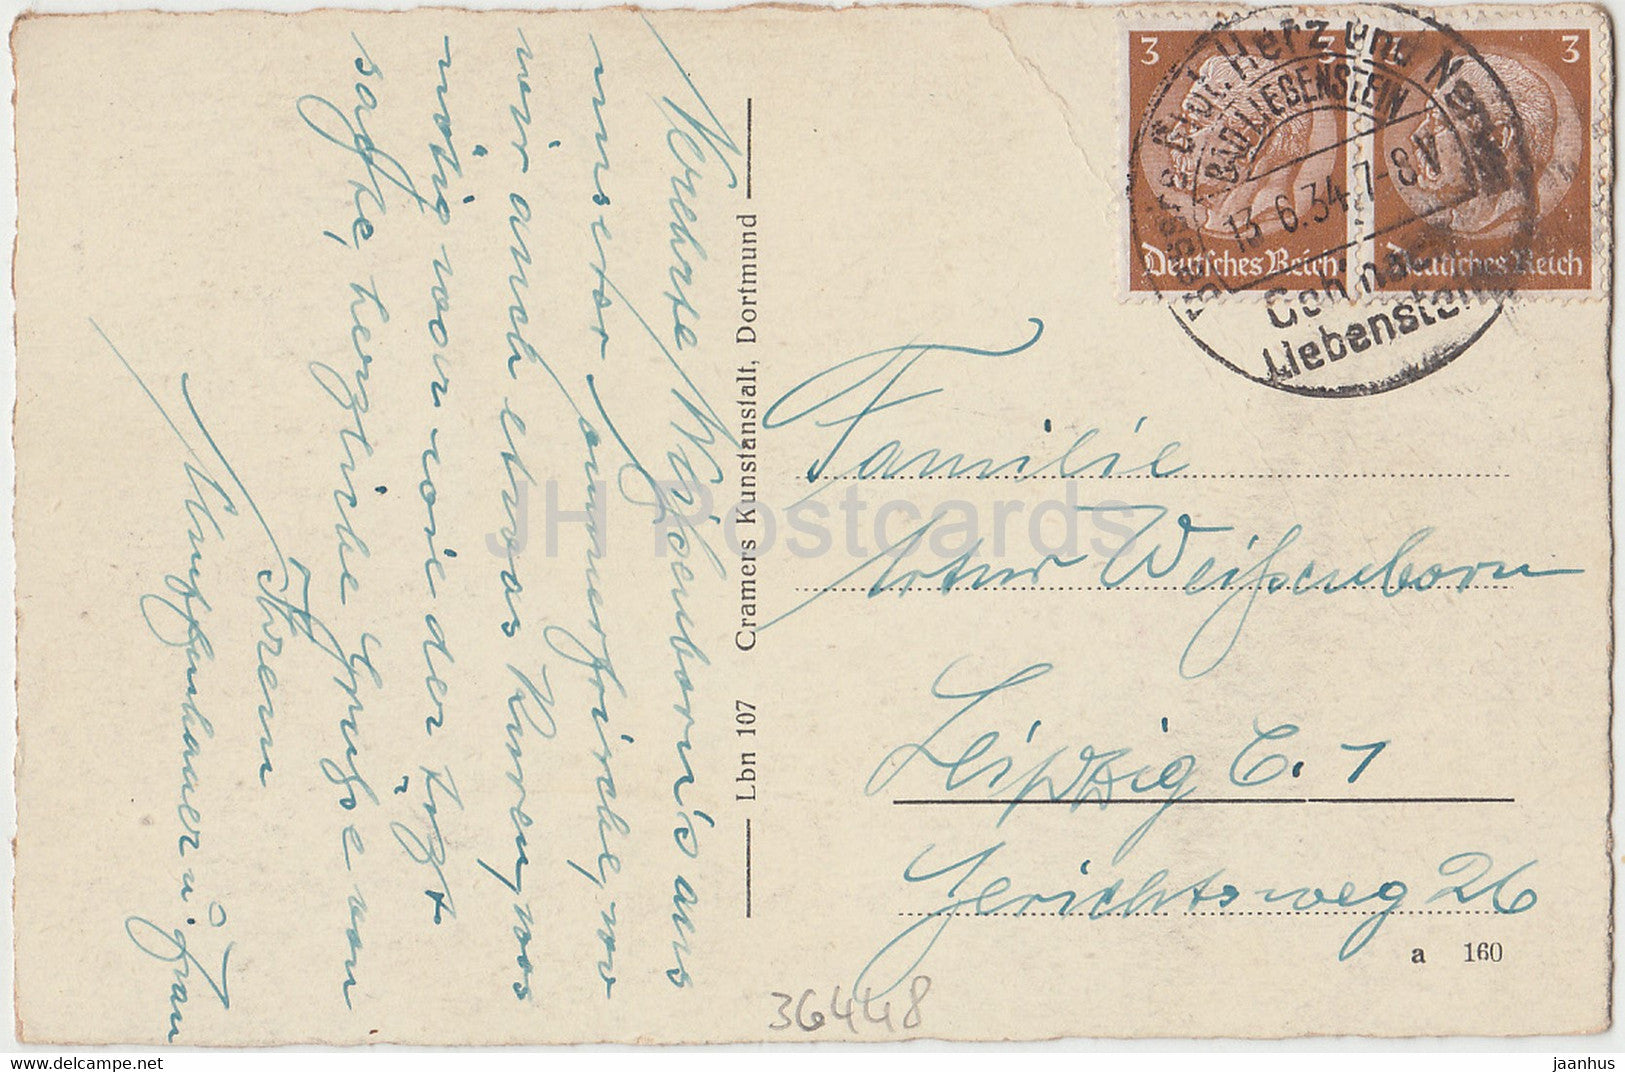 Verehrte Weißenborn's aus
unserer Sommerfrische, wo
wir auch etwas Kuren, was
nötig war wie der Arzt
sagte, herzliche Grüße von
Ihrem
u. Frau
Lbn 107 Cramers Kunstanstalt, Dortmund
3 3
Deutsches Reich Deutsches Reich
Herz und
BAD LIEBENSTEIN
13.6.34.7-8V
Liebenstein
Familie
Artur Weißenborn
Leipzig C. 1
Gerichtsweg 26
a 160
36448
JH Postcards
jaanhus